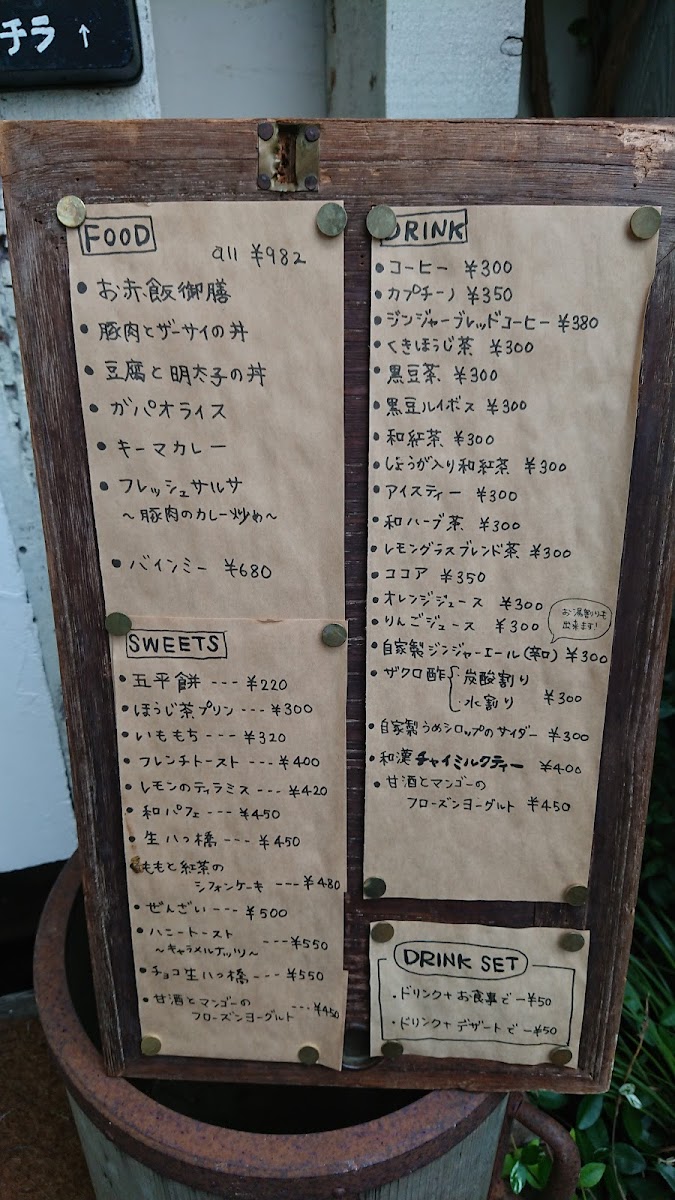 チラ↑
FOOD
all ¥982
・お赤飯御膳
・豚肉とザーサイの丼
・豆腐と明太子の丼
・ガパオライス
・キーマカレー
・フレッシュサルサ
～豚肉のカレー炒め～
・バインミー ¥680
SWEETS
・五平餅 --- ¥220
・ほうじ茶プリン --- ¥300
・いももち --- ¥320
・フレンチトースト --- ¥400
・レモンのティラミス --- ¥420
・和パフェ --- ¥450
・生八つ橋 --- ¥450
・ももと紅茶の
シフォンケーキ --- ¥480
・ぜんざい --- ¥500
・ハニートースト
～キャラメルナッツ～ --- ¥550
・チョコ生八つ橋 --- ¥550
・甘酒とマンゴーの
フローズンヨーグルト --- ¥450
DRINK
・コーヒー ¥300
・カプチーノ ¥350
・ジンジャーブレッドコーヒー ¥380
・くきほうじ茶 ¥300
・黒豆茶 ¥300
・黒豆ルイボス ¥300
・和紅茶 ¥300
・しょうが入り和紅茶 ¥300
・アイスティー ¥300
・和ハーブ茶 ¥300
・レモングラスブレンド茶 ¥300
・ココア ¥350
・オレンジジュース ¥300
・りんごジュース ¥300
お湯割りも
出来ます!
・自家製ジンジャーエール(辛口) ¥300
・ザクロ酢{・炭酸割り
・水割り ¥300
・自家製うめシロップのサイダー ¥300
・和漢チャイミルクティー ¥400
・甘酒とマンゴーの
フローズンヨーグルト ¥450
DRINK SET
・ドリンク+お食事で -¥50
・ドリンク+デザートで -¥50